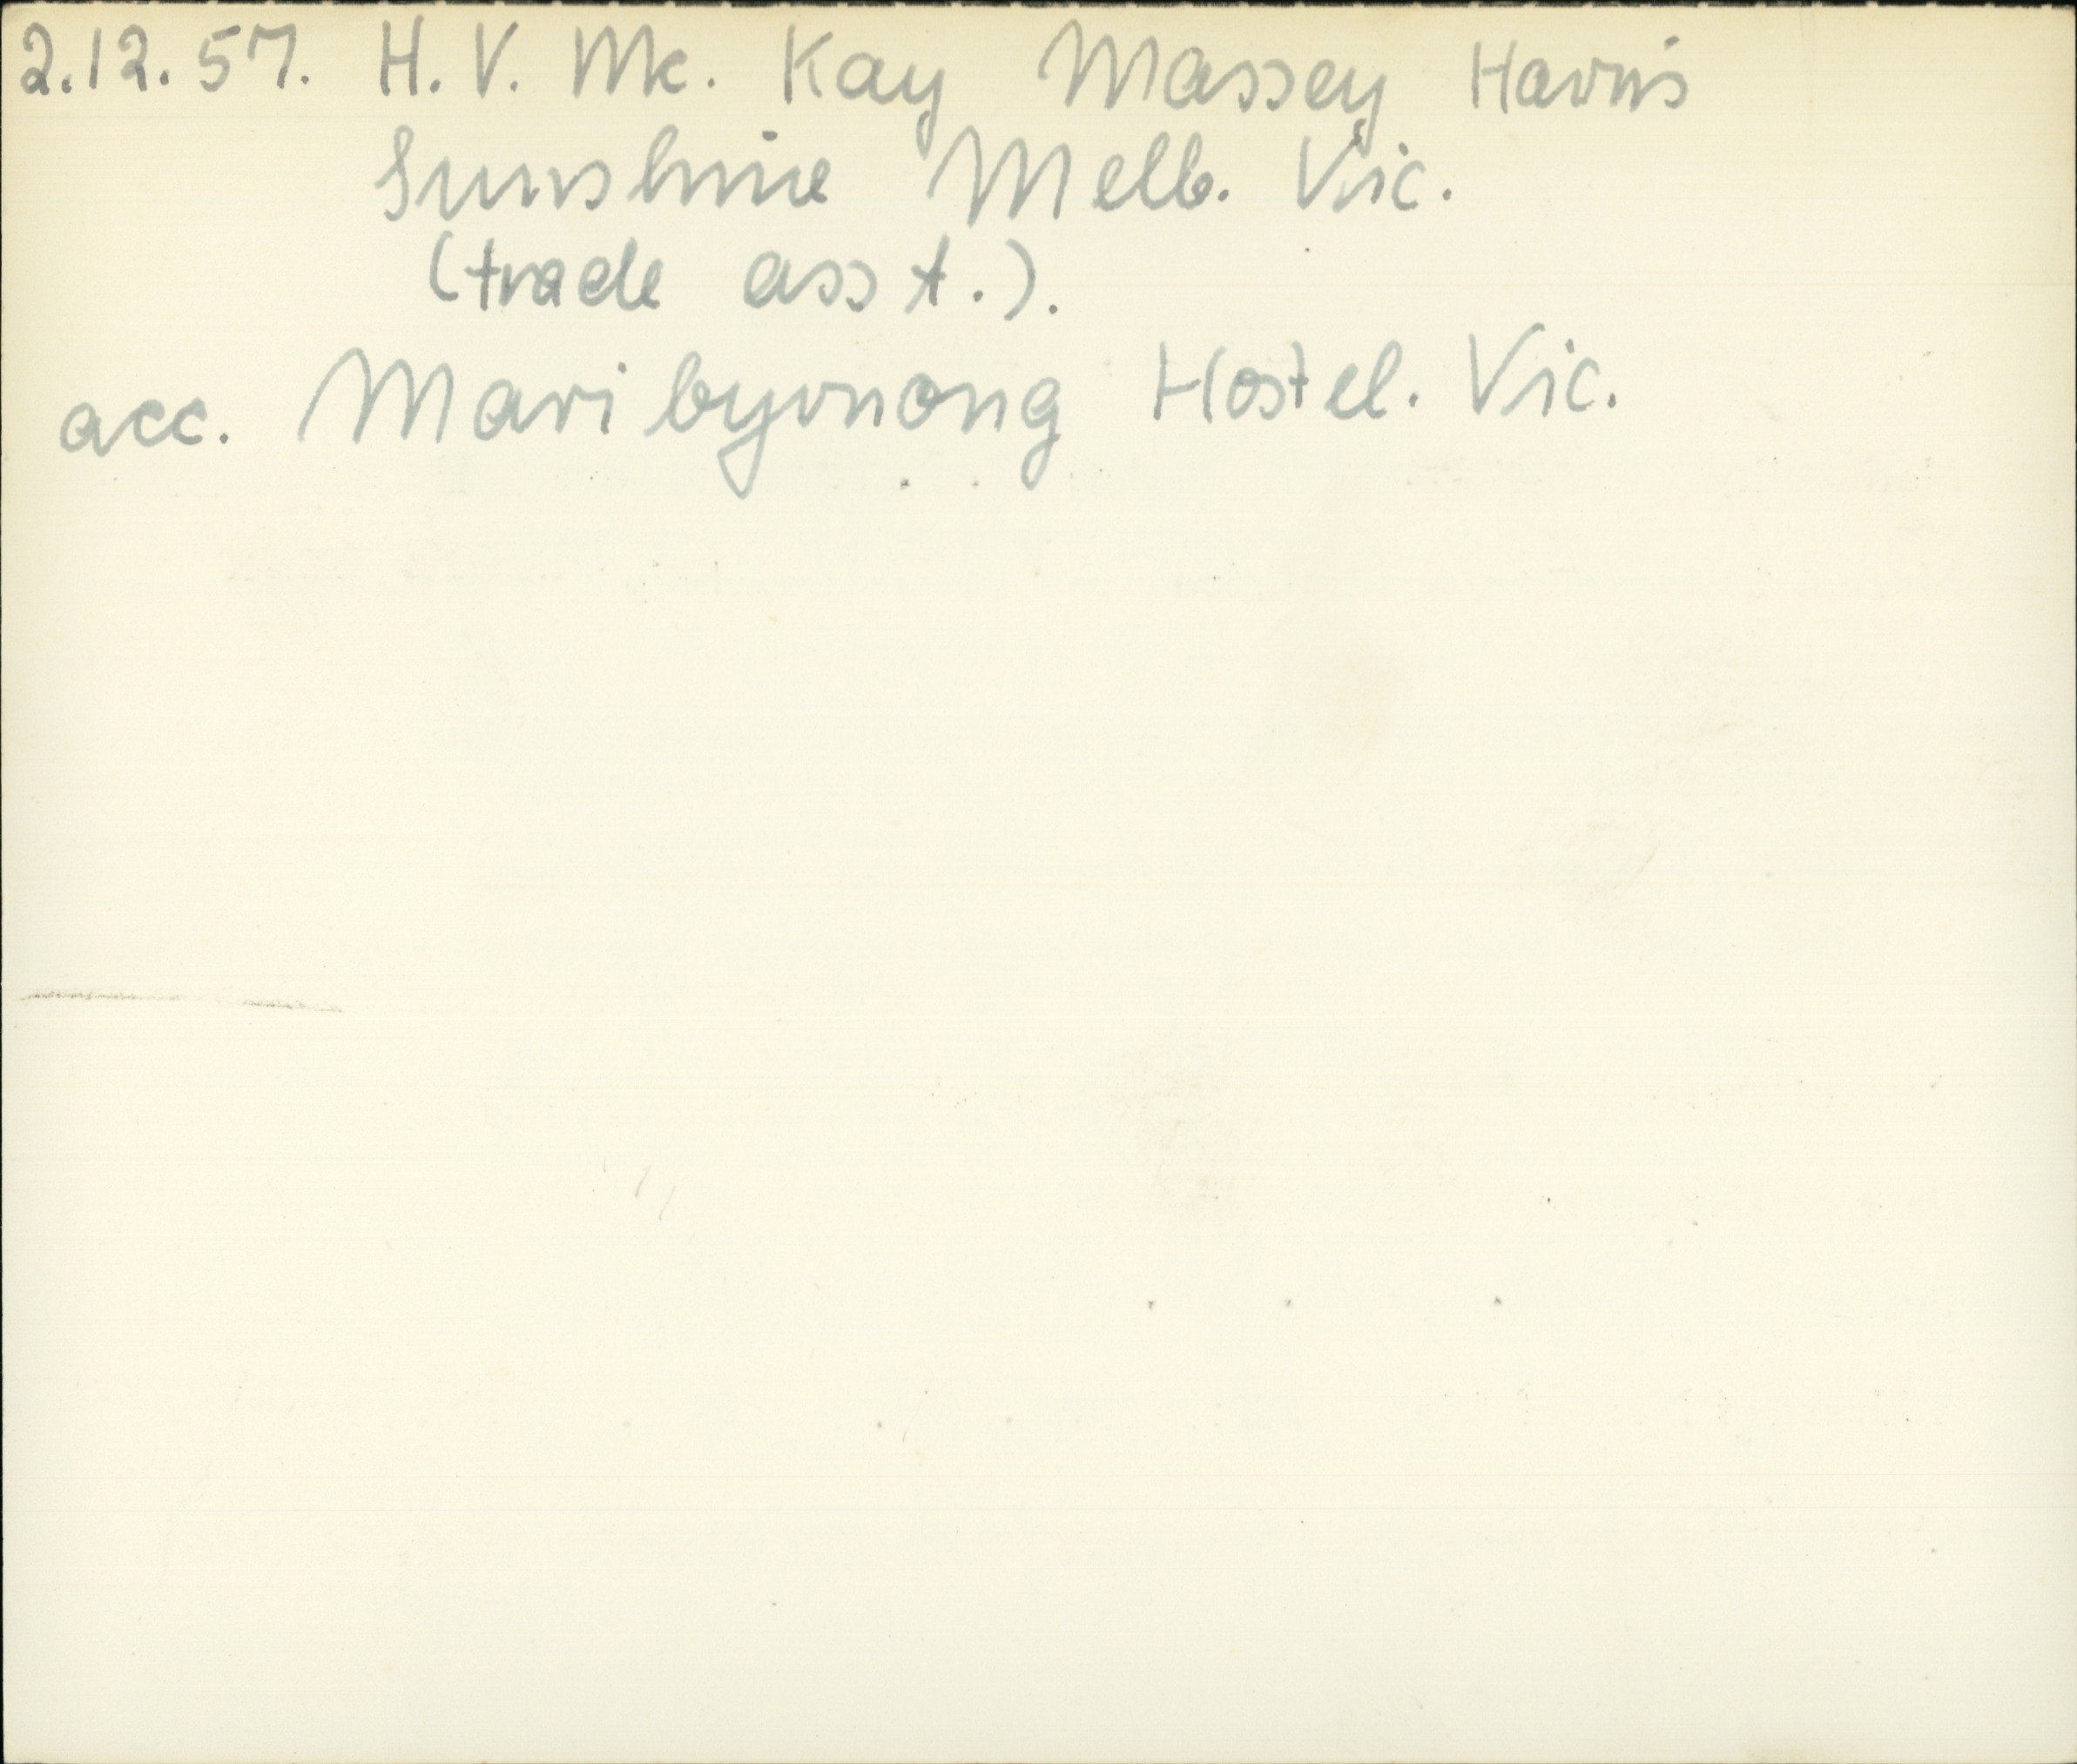 2.12.57. H. V. Mc. Kay Massey Harris
Sunshine Melb. Vic.
(trade asst.).
acc. Maribyrnong Hostel. Vic.